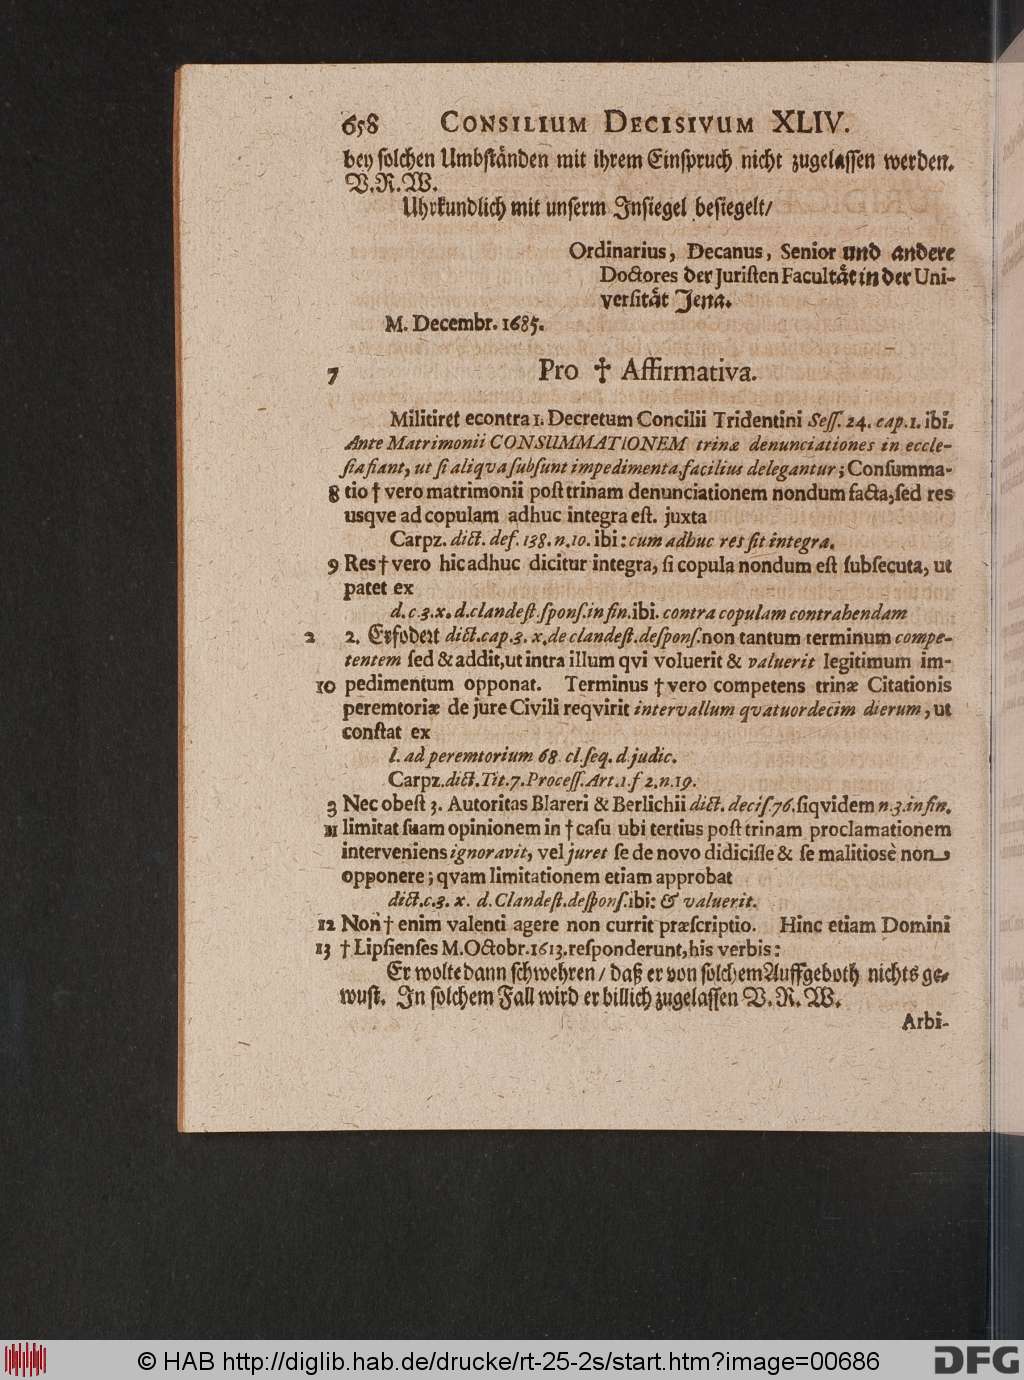 658 CONSILIUM DECISIVUM XLIV.
bey solchen Umbständen mit ihrem Einspruch nicht zugelassen werden.
V. R. W.
Uhrkundlich mit unserm Insiegel besiegelt/
Ordinarius, Decanus, Senior und andere
Doctores der Juristen Facultät in der Uni-
versität Jena.
M. Decembr. 1685.
7 Pro ✝ Affirmativa.
Militiret econtra 1. Decretum Concilii Tridentini Sess. 24. cap. 1. ibi.
Ante Matrimonii CONSUMMATIONEM trinæ denunciationes in eccle-
sia fiant, ut si aliqva subsunt impedimenta, facilius delegantur; Consumma-
8 tio † vero matrimonii post trinam denunciationem nondum facta, sed res
usqve ad copulam adhuc integra est. juxta
Carpz. dict. def. 138. n. 10. ibi: cum adhuc res sit integra.
9 Res † vero hic adhuc dicitur integra, si copula nondum est subsecuta, ut
patet ex
d. c. 3. x. d. clandest. spons. in fin. ibi. contra copulam contrahendam
2 2. Erfodert dict. cap. 3. x. de clandest. despons. non tantum terminum compe-
tentem sed & addit, ut intra illum qvi voluerit & valuerit legitimum im-
10 pedimentum opponat. Terminus † vero competens trinæ Citationis
peremtoriæ de jure Civili reqvirit intervallum qvatuordecim dierum, ut
constat ex
l. ad peremtorium 68. cl. seq. d. judic.
Carpz. dict. Tit. 7. Process. Art. 1. f 2. n. 19.
3 Nec obest 3. Autoritas Blareri & Berlichii dict. decis. 76. siqvidem n. 3. in fin.
11 limitat suam opinionem in † casu ubi tertius post trinam proclamationem
interveniens ignoravit, vel juret se de novo didicisse & se malitiosè non
opponere; qvam limitationem etiam approbat
dict. c. 3. x. d. Clandest. despons. ibi: & valuerit.
12 Non † enim valenti agere non currit præscriptio. Hinc etiam Domini
13 † Lipsienses M. Octobr. 1613. responderunt, his verbis:
Er wolte dann schwehren / daß er von solchem Auffgeboth nichts ge-
wust. In solchem Fall wird er billich zugelassen V. R. W.
Arbi-
© HAB http://diglib.hab.de/drucke/rt-25-2s/start.htm?image=00686 DFG